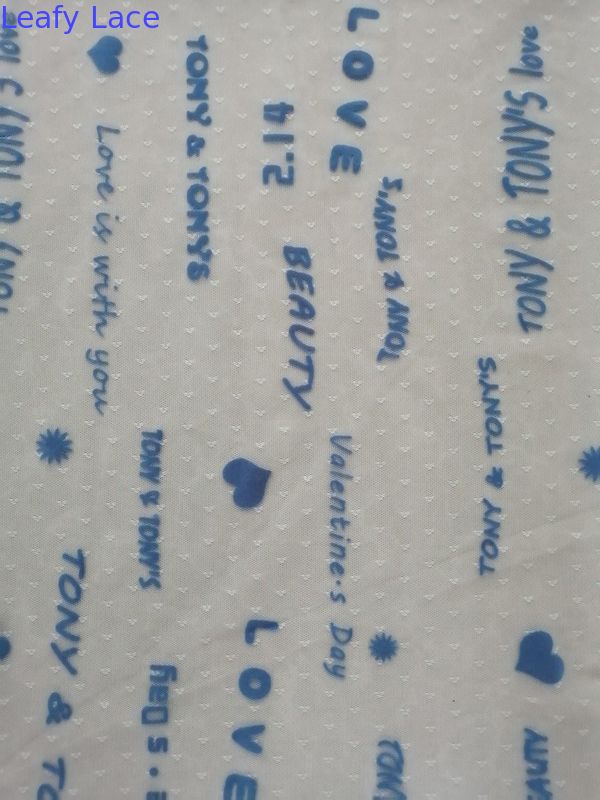 Leafy Lace
LOVE
TONY & TONY'S love
TONY & TONY'S
2.14
Love is with you
TONY & TONY'S
BEAUTY
TONY & TONY'S
TONY & TONY'S
Valentine·s Day
TONY &
LOVE
TONY